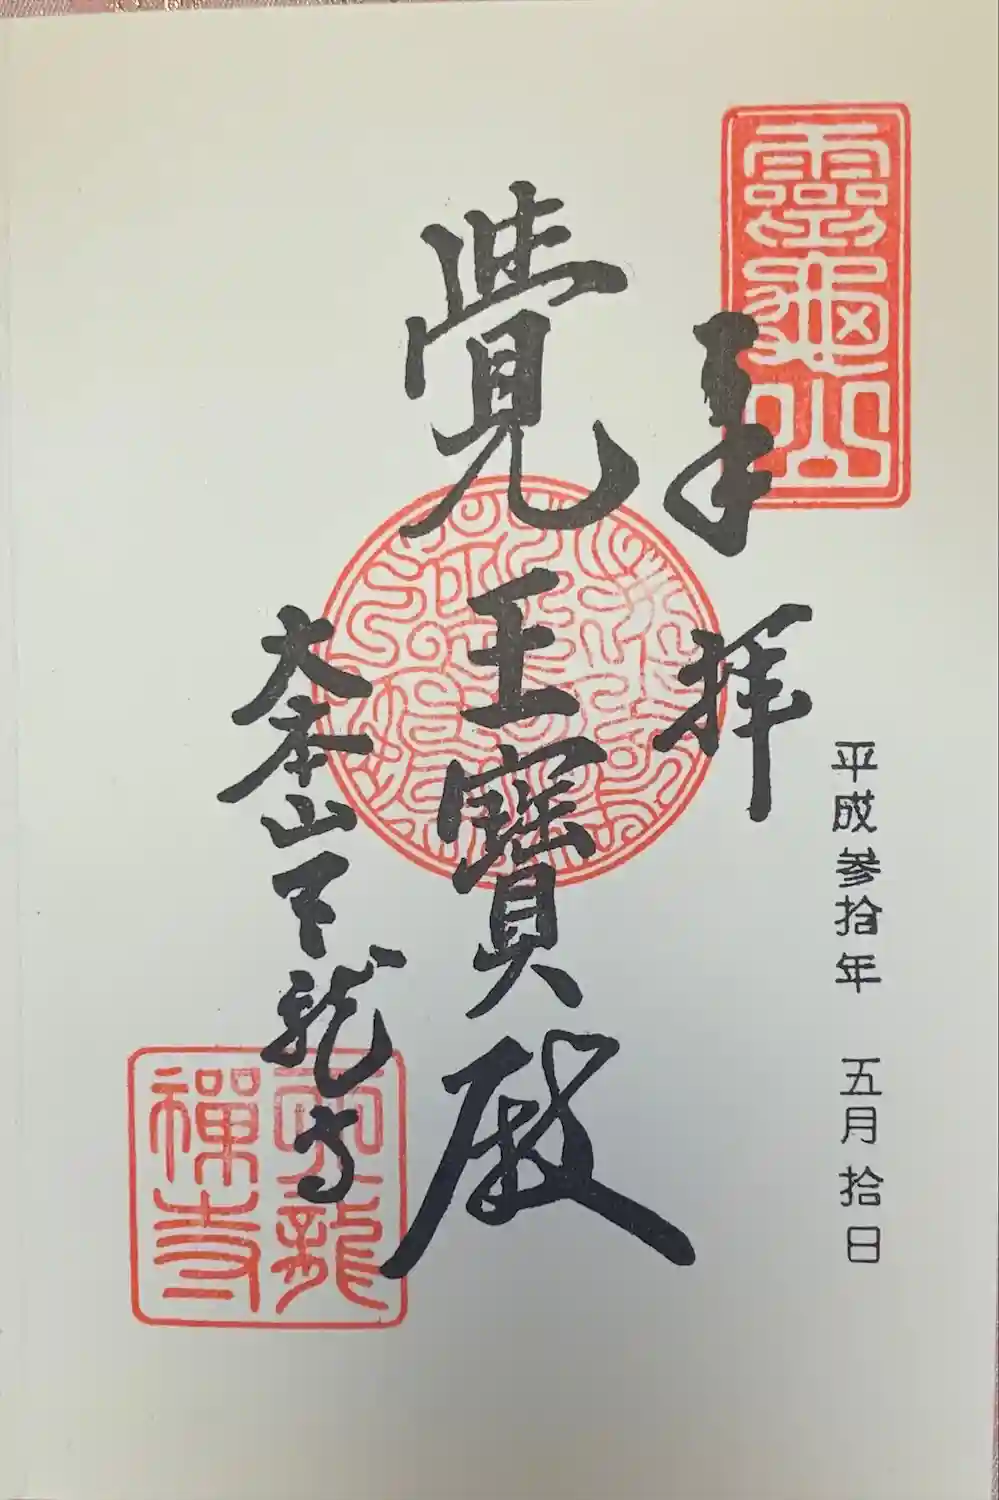 靈龜山
奉拝
平成参拾年 五月拾日
覺王寶殿
大本山天龍寺
天龍
禅寺